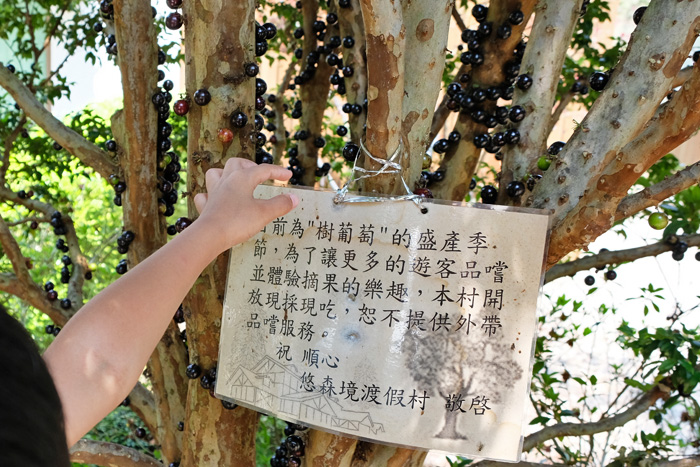 目前為"樹葡萄"的盛產季
節，為了讓更多的遊客品嚐
並體驗摘果的樂趣，本村開
放現採現吃，恕不提供外帶
品嚐服務。
祝 順心
悠森境渡假村 敬啓